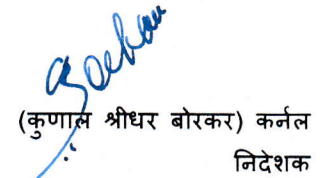 (कुणाल श्रीधर बोरकर) कर्नल
निदेशक